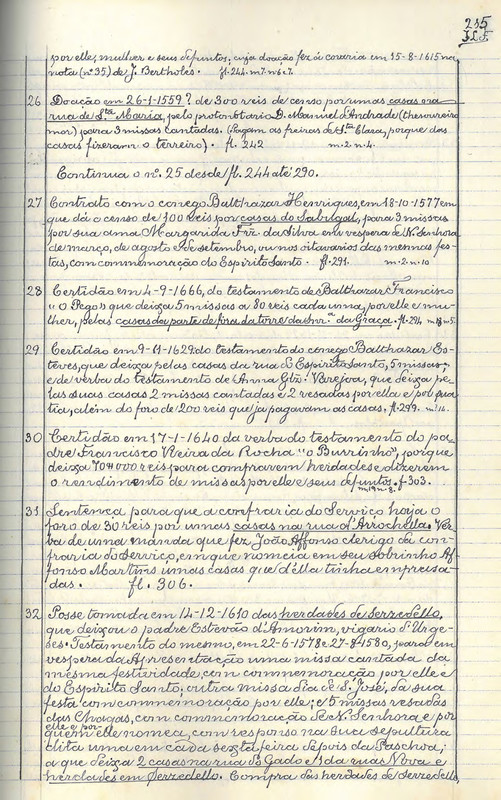 215
J.L.F.
por elle, mulher e seus defuntos, cuja doação fez á coraria em 15-8-1615 na
nota (nº 35) de J. Bertholes. fl. 244. m.7. nos 6.7.
26 Doação em 26-1-1559? de 300 reis de censo por umas casas na
rua de Sta Maria, pelo protonotario D. Manuel d'Andrade (thesoureiro
mor) para 3 missas cantadas. (Pagam as freiras de Sta Clara, porque das
casas fizeram o terreiro). fl. 242 m. 2. n. 4.
Continua o nº 25 desde fl. 244 até 290.
27 Contrato com o conego Balthazar Henriques, em 18-10-1577 em
que dá o censo de 100 reis por casas do Sabugal, para 3 missas
por sua ama Margarida Frz da Silva em vespera de N. Senhora
de março, de agosto e de setembro, ou nos oitavarios das mesmas fes-
tas, com commemoração do Espirito Santo. fl. 291. m. 2. n. 10
28 Certidão em 4-9-1666, do testamento de Balthazar Francisco
"o Pego" que deixa 5 missas a 80 reis cada uma, por elle e mu-
lher, pelas casas da parte de fóra da torre da Snr.ª da Graça. fl. 294 m. 18 n. 5.
29 Certidão em 9-11-1629 do testamento do conego Balthazar Es-
teves, que deixa pelas casas da rua do Espirito Santo, 5 missas;
e de verba do testamento de Anna Glz. Varejoa, que deixa pe-
las suas casas 2 missas cantadas e 2 resadas por ella e por sua
tia, além do foro de 200 reis que já pagavam as casas. fl. 299.
30 Certidão em 17-1-1640 da verba do testamento do pa-
dre Francisco Vieira da Rocha "o Burrinho", porque
deixa 70#000 reis para comprarem herdades e dizerem
o rendimento de missas por elle e seus defuntos. f. 303.
m. 19 n. 8.
31 Sentença para que a confraria do Serviço haja o
foro de 30 reis por umas casas na rua d'Arrochella. Ver-
ba de uma manda que fez João Affonso clerigo da con-
fraria do serviço, em que nomeia em seu sobrinho Af-
fonso Martins umas casas que d'ella tinha empraza-
das. fl. 306.
32 Posse tomada em 14-12-1610 das herdades de Serzedello,
que deixou o padre Estevão d'Amorim, vigario d'Urge-
ses. Testamento do mesmo, em 22-6-1578 e 27-8-1580, para em
vespera da Apresentação uma missa cantada da
mesma festividade, com commemoração por elle e
do Espirito Santo, outra missa dia de S. José, da sua
festa com commemoração por elle; e 5 missas resadas
das Chagas, com commemoração de N. Senhora e por
elle e por
quem elle nomea, com responso na sua sepultura
dita uma em cada sexta feira depois da Paschoa;
a que deixa 2 casas na rua do Gado e 1 da rua Nova e
herdades em Serzedello. Compra das herdades de Serzedello,